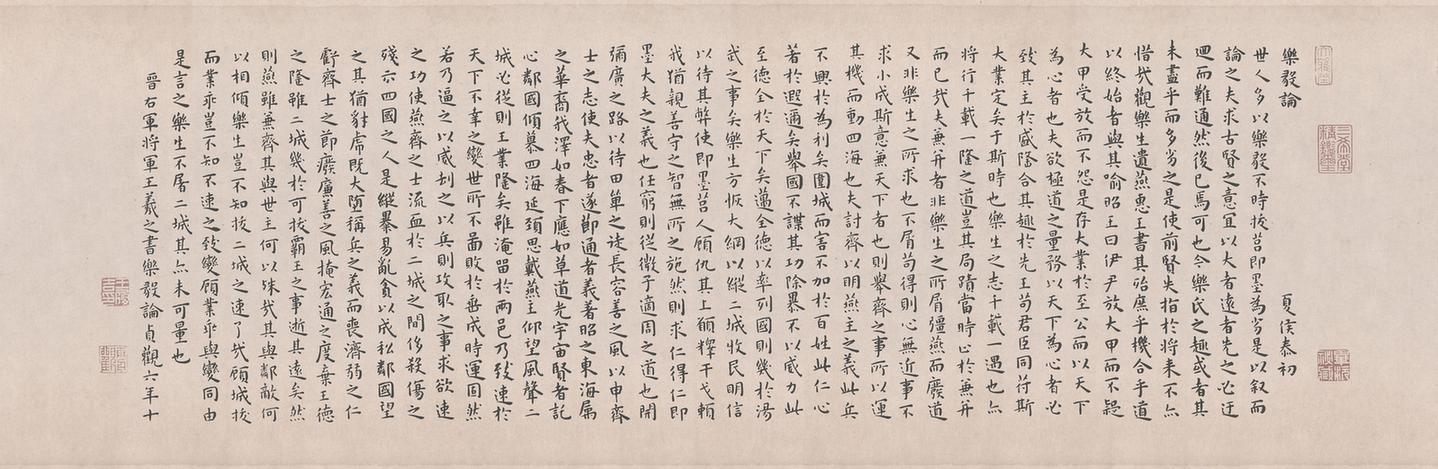 樂毅論 夏侯泰初
世人多以樂毅不時拔莒即墨為劣是以叙而
論之夫求古賢之意宜以大者遠者先之必迂
迴而難通然後已焉可也今樂氏之趣或者其
未盡乎而多劣之是使前賢失指於將来不亦
惜哉觀樂生遺燕惠王書其殆庶乎機合乎道
以終始者與其喻昭王曰伊尹放大甲而不疑
大甲受放而不怨是存大業於至公而以天下
為心者也夫欲極道之量務以天下為心者必
致其主於盛隆合其趣於先王苟君臣同苻斯
大業定矣于斯時也樂生之志千載一遇也亦
將行千載一隆之道豈其局蹟當時止於兼并
而已哉夫兼并者非樂生之所屑彊燕而廢道
又非樂生之所求也不屑苟得則心無近事不
求小成斯意兼天下者也則舉齊之事所以運
其機而動四海也夫討齊以明燕主之義此兵
不興於為利矣圍城而害不加於百姓此仁心
著於遐邇矣舉國不謀其功除暴不以威力此
至德全於天下矣邁全德以率列國則幾於湯
武之事矣樂生方恢大綱以縱二城收民明信
以待其弊使即墨莒人顧仇其上願釋干戈賴
我猶親善守之智無所之施然則求仁得仁即
墨大夫之義也任窮則從微子適周之道也開
彌廣之路以待田單之徒長容善之風以申齊
士之志使夫忠者遂節通者義著昭之東海属
之華裔我澤如春下應如草道光宇宙賢者託
心鄰國傾慕四海延頸思戴燕主仰望風聲二
城必從則王業隆矣雖淹留於兩邑乃致速於
天下不幸之變世所不啚敗於垂成時運固然
若乃逼之以威刼之以兵則攻取之事求欲速
之功使燕齊之士流血於二城之間侈殺傷之
殘示四國之人是縱暴易亂貪以成私鄰國望
之其猶豺虎既大墮稱兵之義而喪濟弱之仁
虧齊士之節廢廉善之風掩宏通之度棄王德
之隆雖二城幾於可拔霸王之事逝其遠矣然
則燕雖兼齊其與世主何以殊哉其與鄰敵何
以相傾樂生豈不知拔二城之速了哉顧城拔
而業乖豈不知不速之致變顧業乖與變同由
是言之樂生不屠二城其亦未可量也
晉右軍將軍王羲之書樂毅論貞觀六年十
三希堂
精鑑璽